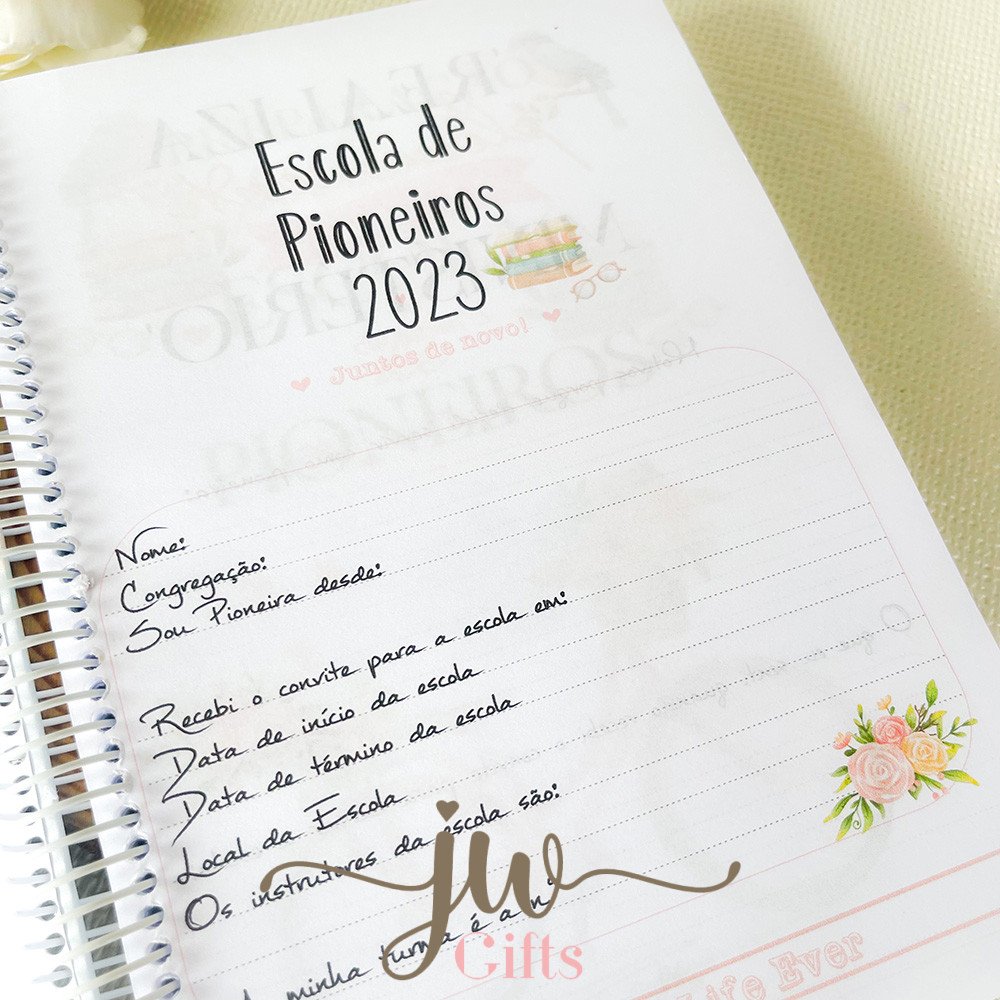 Escola de
Pioneiros
2023
Juntos de novo!
Nome:
Congregação:
Sou Pioneira desde:
Recebi o convite para a escola em:
Data de início da escola
Data de término da escola
Local da Escola
Os instrutores da escola são:
minha turma é a
jw
Gifts
Life Ever